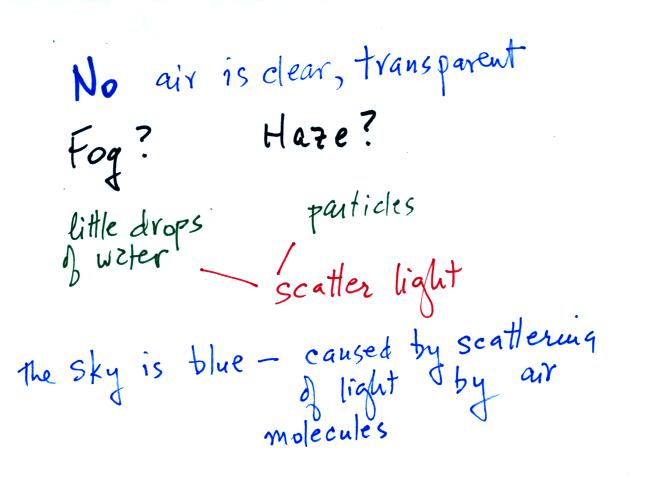 No air is clear, transparent
Fog? Haze?
little drops particles
of water
scatter light
the sky is blue — caused by scattering
of light by air
molecules